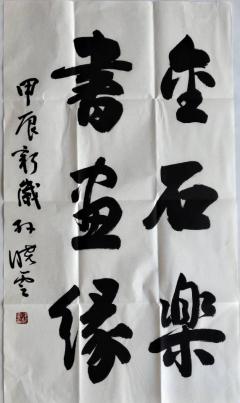 金石樂
書畫緣
甲辰新歲孫曉雲